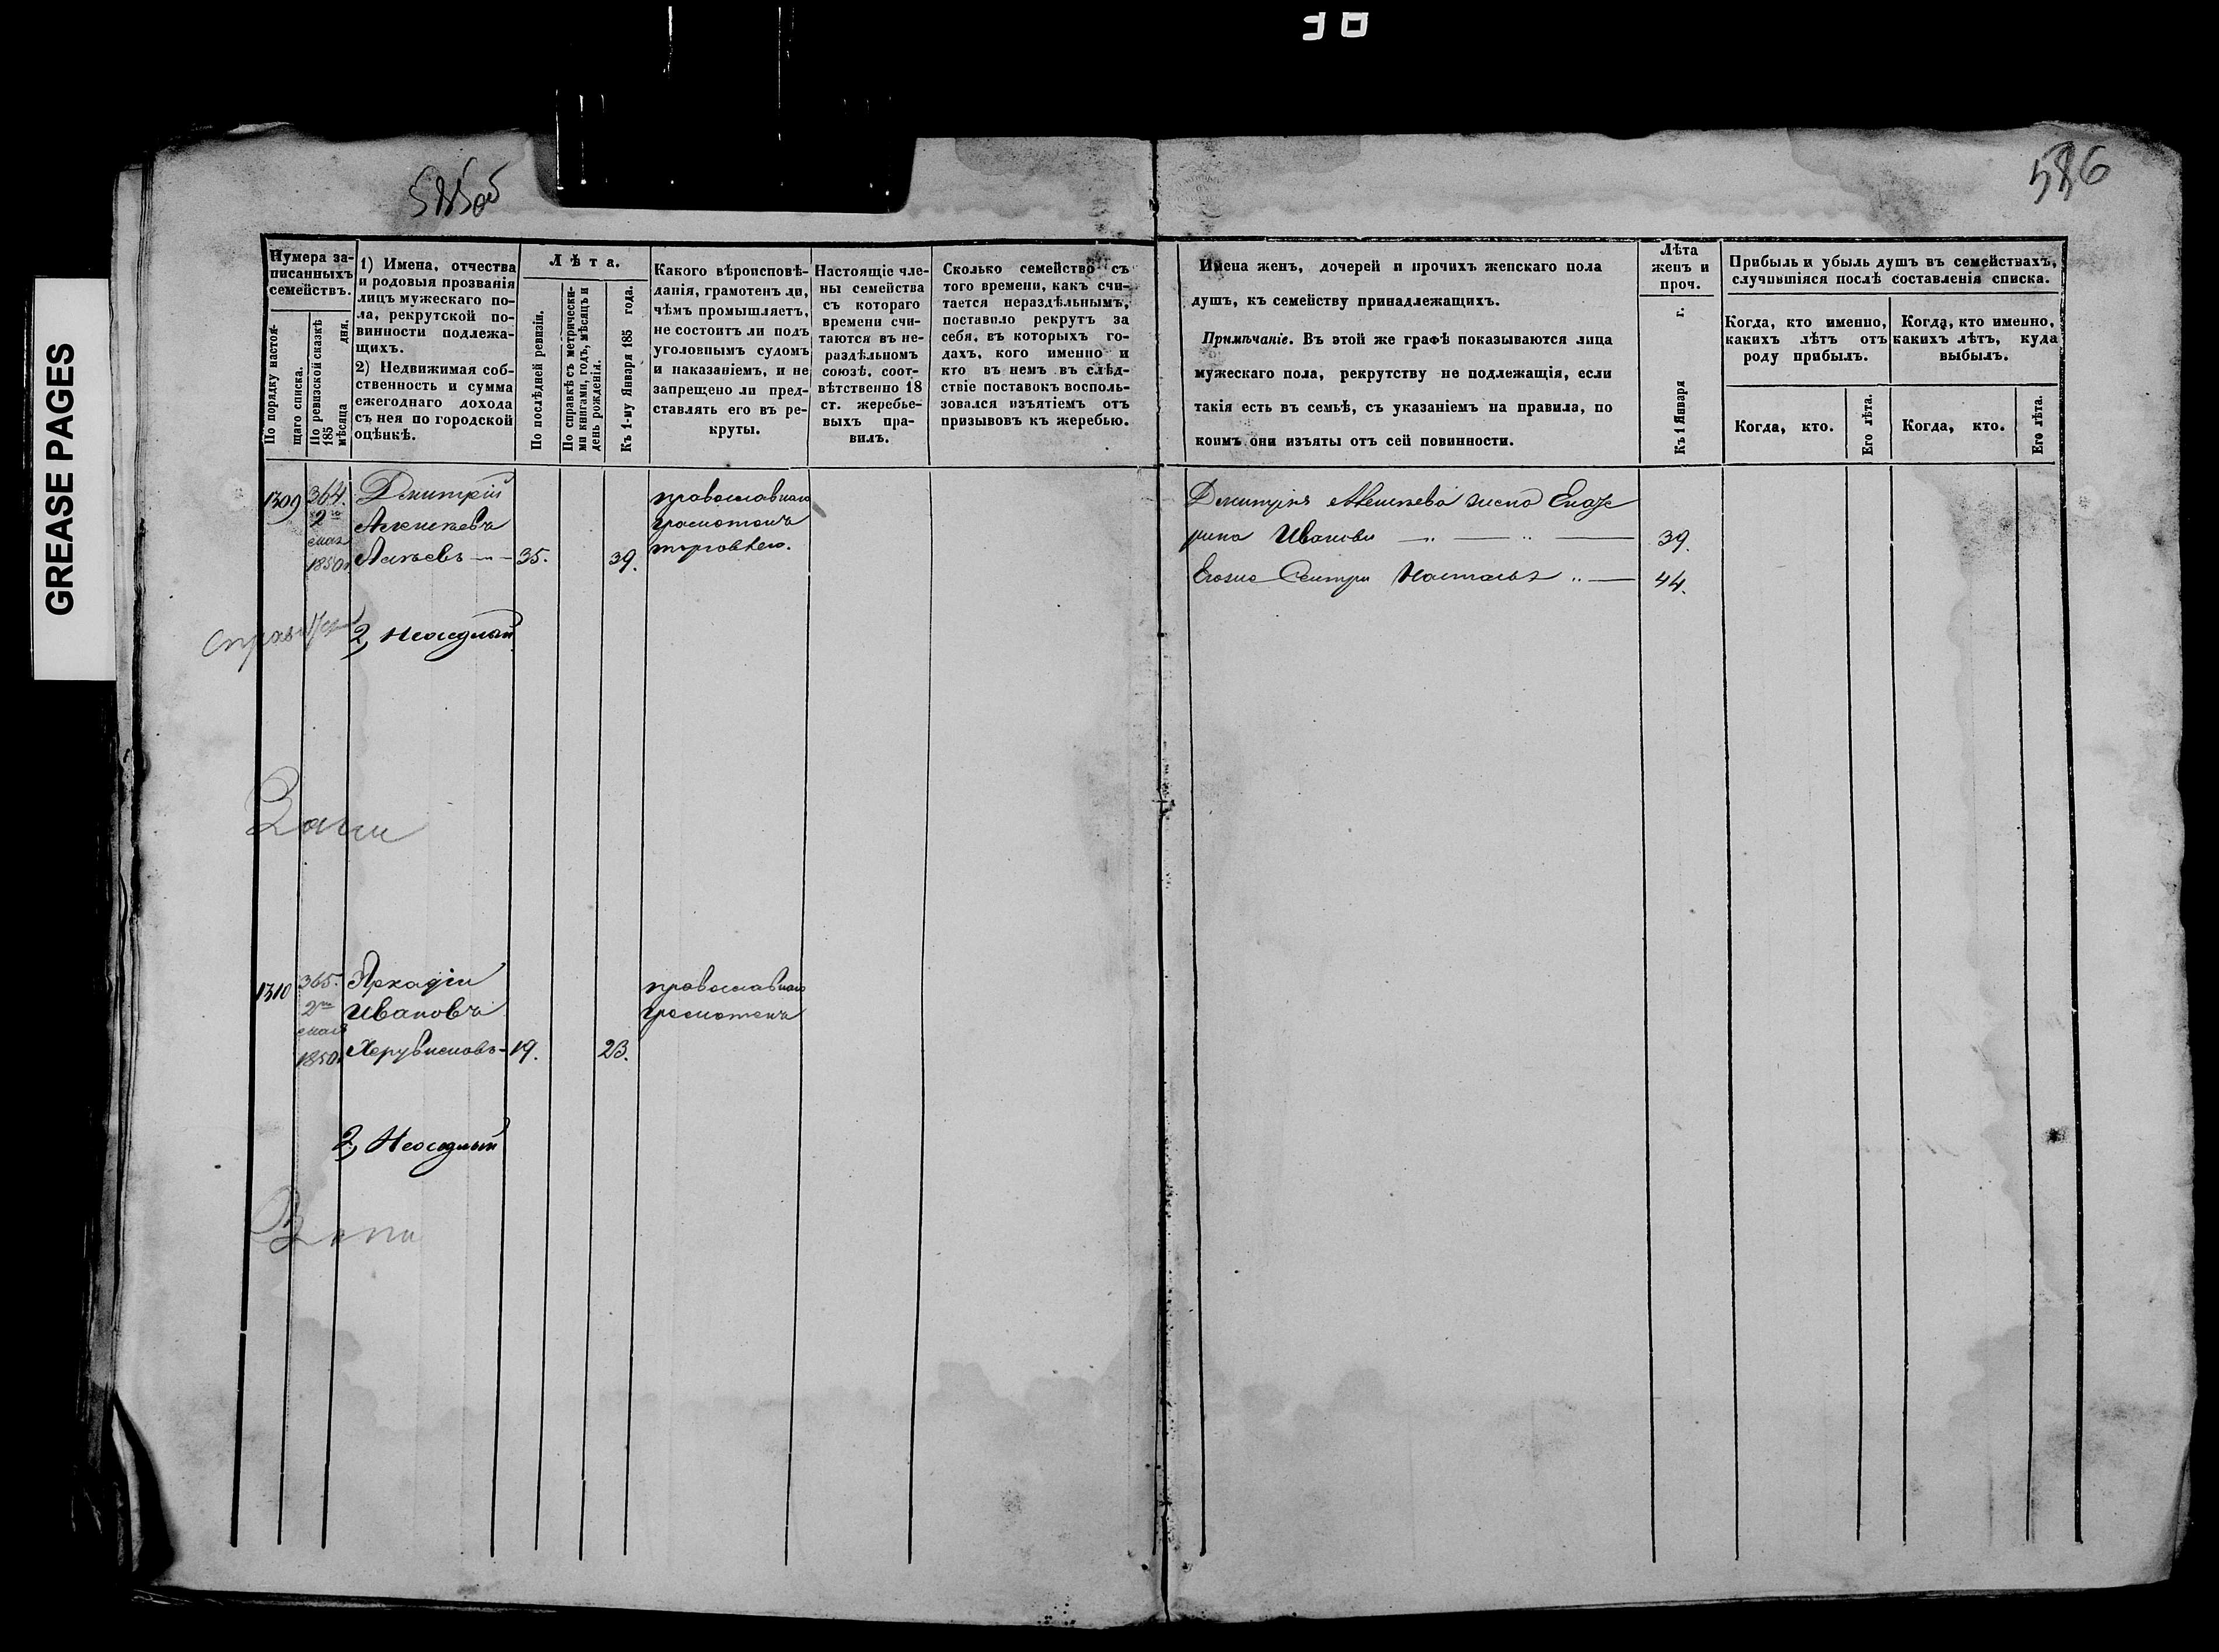 30
GREASE PAGES
585об
586
Нумера за-
писанныхъ
семействъ.
По порядку настоя-
щаго списка.
По ревизской сказкѣ
185 дня,
мѣсяца
1) Имена, отчества
и родовыя прозванія
лицъ мужескаго по-
ла, рекрутской по-
винности подлежа-
щихъ.
2) Недвижимая соб-
ственность и сумма
ежегоднаго дохода
съ нея по городской
оцѣнкѣ.
Лѣта.
По послѣдней ревизіи.
По справкѣ съ метрически-
ми книгами, годъ, мѣсяцъ и
день рожденія.
Къ 1-му Января 185 года.
Какого вѣроисповѣ-
данія, грамотенъ ли,
чѣмъ промышляетъ,
не состоитъ ли подъ
уголовнымъ судомъ
и наказаніемъ, и не
запрещено ли пред-
ставлять его въ ре-
круты.
Настоящіе чле-
ны семейства
съ котораго
времени счи-
таются въ не-
раздѣльномъ
союзѣ, соот-
вѣтственно 18
ст. жеребье-
выхъ пра-
вилъ.
Сколько семейство съ
того времени, какъ счи-
тается нераздѣльнымъ,
поставило рекрутъ за
себя, въ которыхъ го-
дахъ, кого именно и
кто въ немъ въ слѣд-
ствіе поставокъ восполь-
зовался изъятіемъ отъ
призывовъ къ жеребью.
Имена женъ, дочерей и прочихъ женскаго пола
душъ, къ семейству принадлежащихъ.
Примѣчаніе. Въ этой же графѣ показываются лица
мужескаго пола, рекрутству не подлежащія, если
такія есть въ семьѣ, съ указаніемъ на правила, по
коимъ они изъяты отъ сей повинности.
Лѣта
женъ и
проч.
Къ 1 Января г.
Прибыль и убыль душъ въ семействахъ,
случившіяся послѣ составленія списка.
Когда, кто именно,
какихъ лѣтъ отъ
роду прибылъ.
Когда, кто именно,
какихъ лѣтъ, куда
выбылъ.
Когда, кто.
Его лѣта.
Когда, кто.
Его лѣта.
1309 364. Дмитрій православнаго
2го грамотенъ
мая
1850г. 35. 39. торговлею.
2, Неоседлый
Дмитрія жена Ека
рина Иванова 39.
Его же сестра Настасья 44.
1310 365. Аркадій православнаго
2го Ивановъ грамотенъ
мая
1850г. Херувимовъ 19. 23.
2, Неоседлый